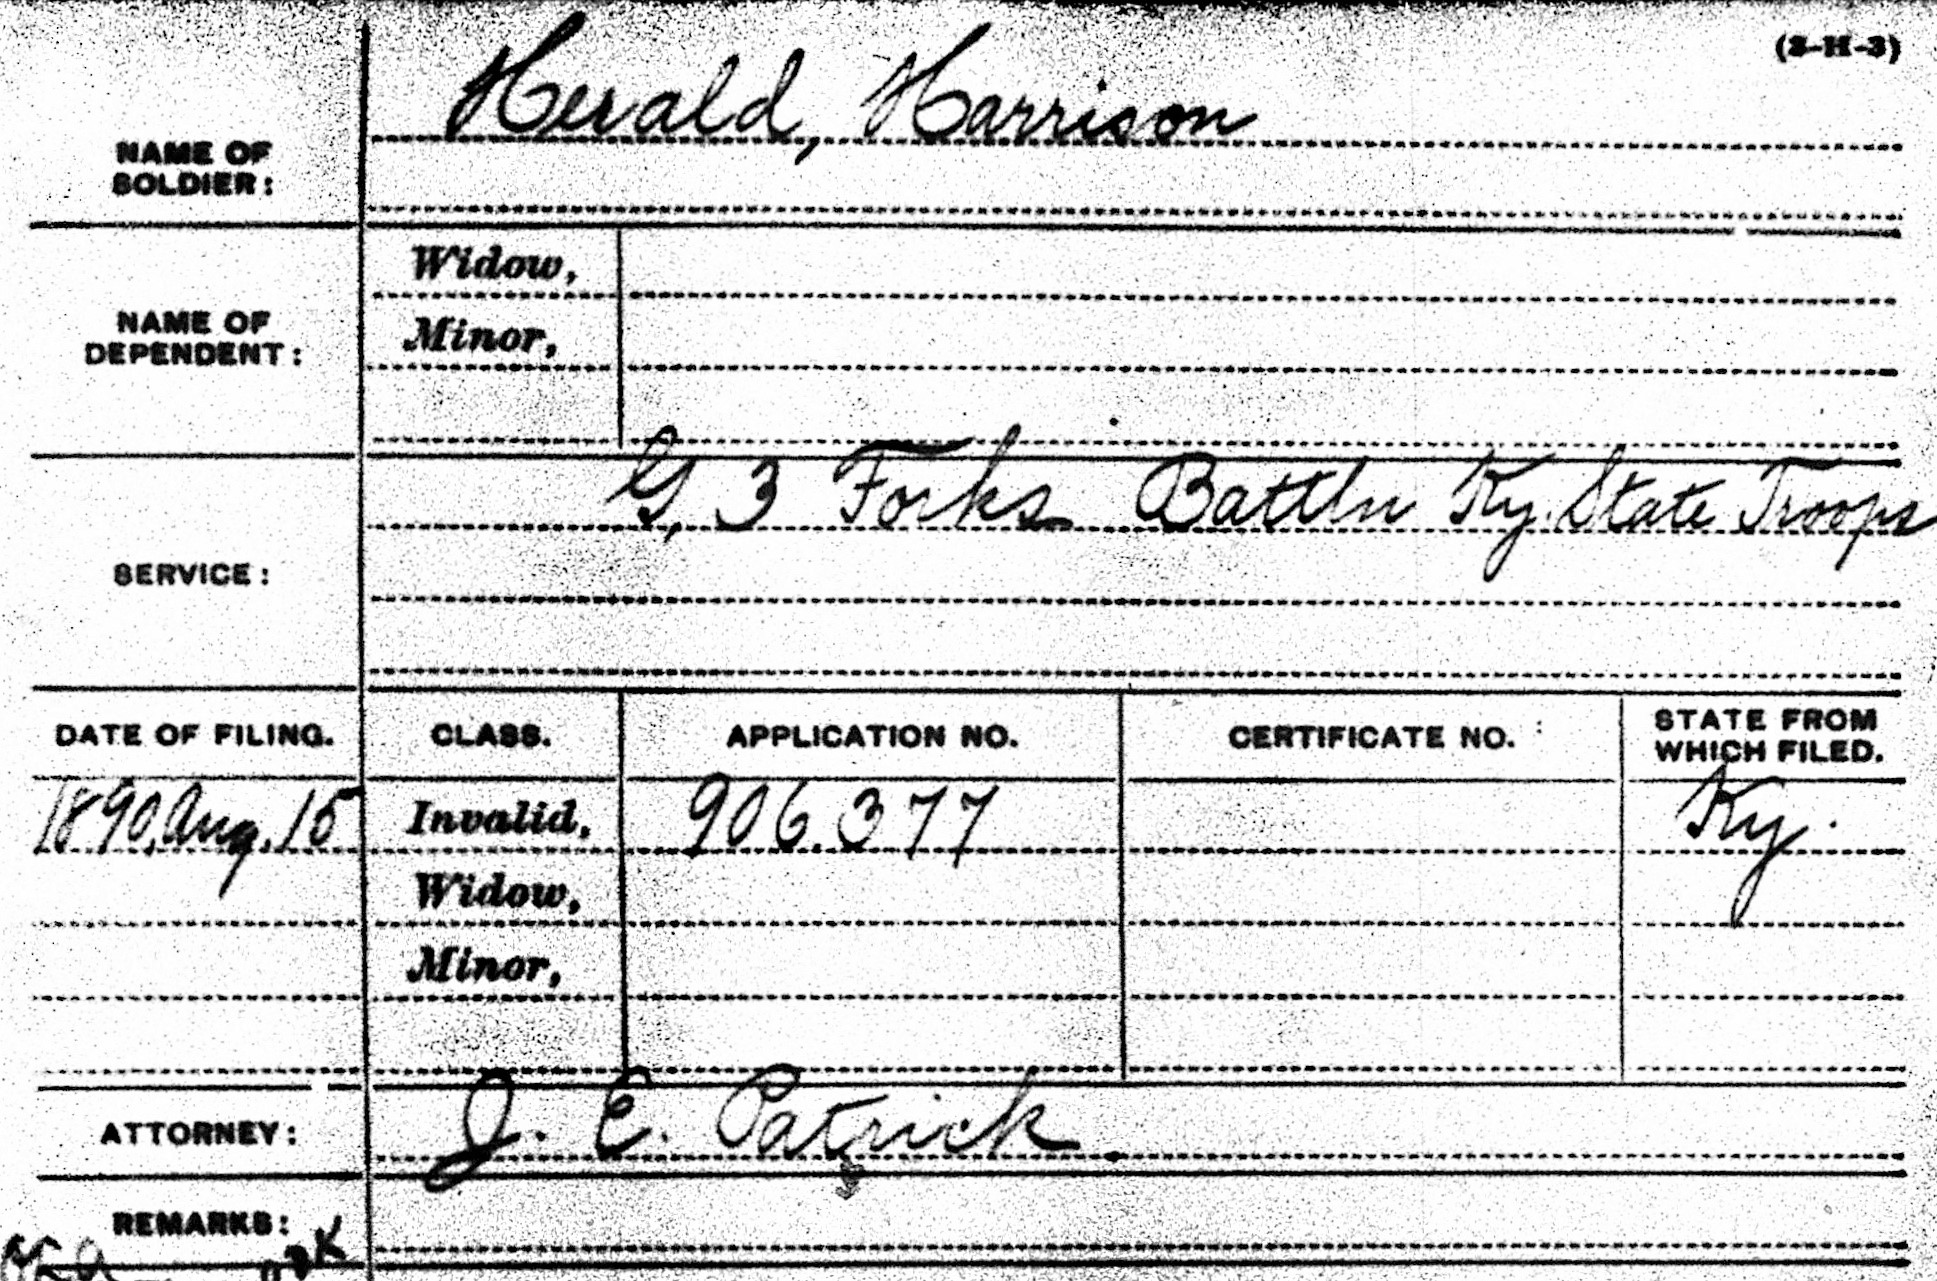 (3-H-3)
Herald, Harrison
NAME OF
SOLDIER:
Widow,
Minor,
NAME OF
DEPENDENT:
G, 3 Forks Battln Ky. State Troops
SERVICE:
DATE OF FILING. CLASS. APPLICATION NO. CERTIFICATE NO. STATE FROM WHICH FILED.
1890, Aug. 15 Invalid, 906.377 Ky.
Widow,
Minor,
ATTORNEY: J. E. Patrick
REMARKS: